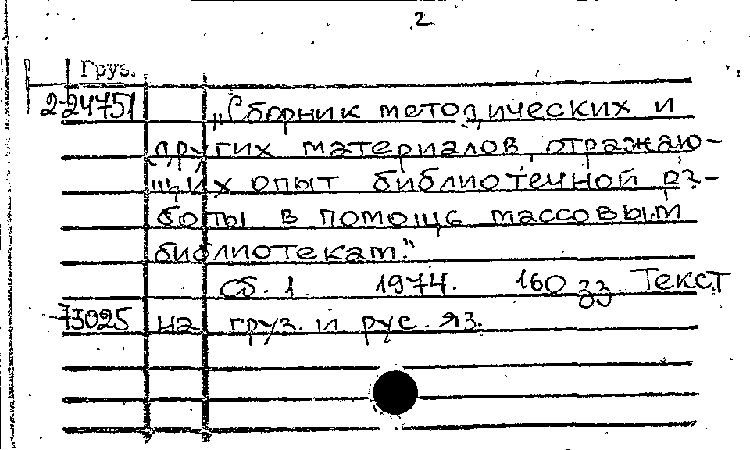 2
Груз.
2-24751 „Сборник методических и
других материалов, отражаю-
щих опыт библиотечной ра-
боты в помощь массовым
библиотекам."
Сб. 1 1974. 160 გვ. Текст
73025 на груз. и рус. яз.